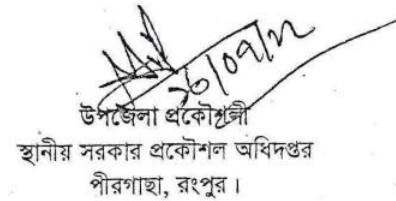 উপজেলা প্রকৌশলী
স্থানীয় সরকার প্রকৌশল অধিদপ্তর
পীরগাছা, রংপুর।